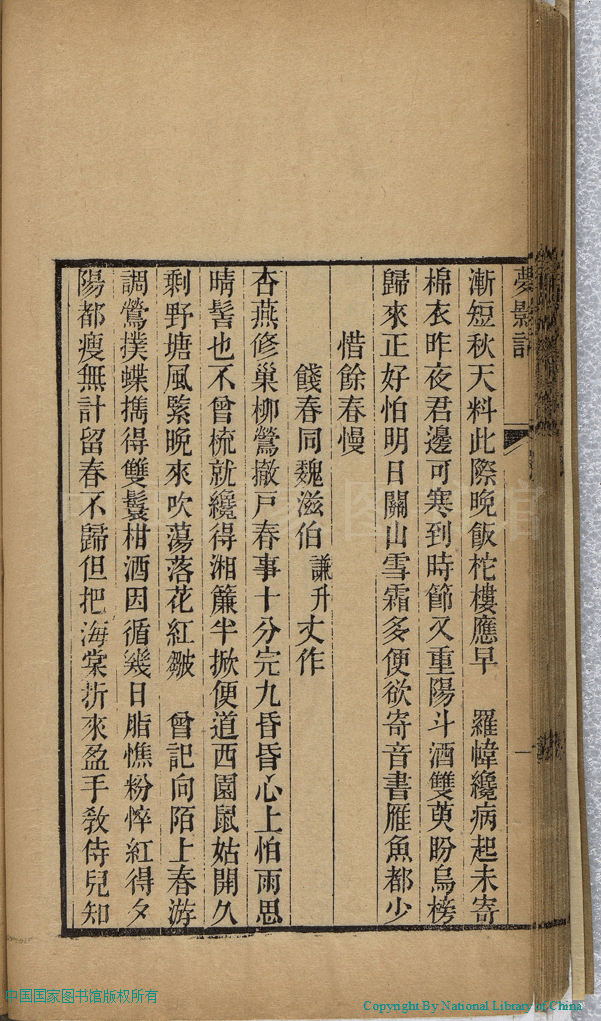 夢影詞
漸短秋天料此際晚飯柁樓應早　羅幃纔病起未寄
棉衣昨夜君邊可寒到時節又重陽斗酒雙萸盼烏榜
歸來正好怕明日關山雪霜多便欲寄音書雁魚都少
惜餘春慢
餞春同魏滋伯謙升丈作
杏燕修巢柳鶯撤戸春事十分完九昏昏心上怕雨思
晴髻也不曾梳就纔得湘簾半掀便道西園鼠姑開久
剩野塘風緊晚來吹蕩落花紅皺　曾記向陌上春游
調鶯撲蝶攜得雙鬟柑酒因循幾日脂憔粉悴紅得夕
陽都瘦無計留春不歸但把海棠折來盈手敎侍兒知
一
中国国家图书馆版权所有
Copyright By National Library of China